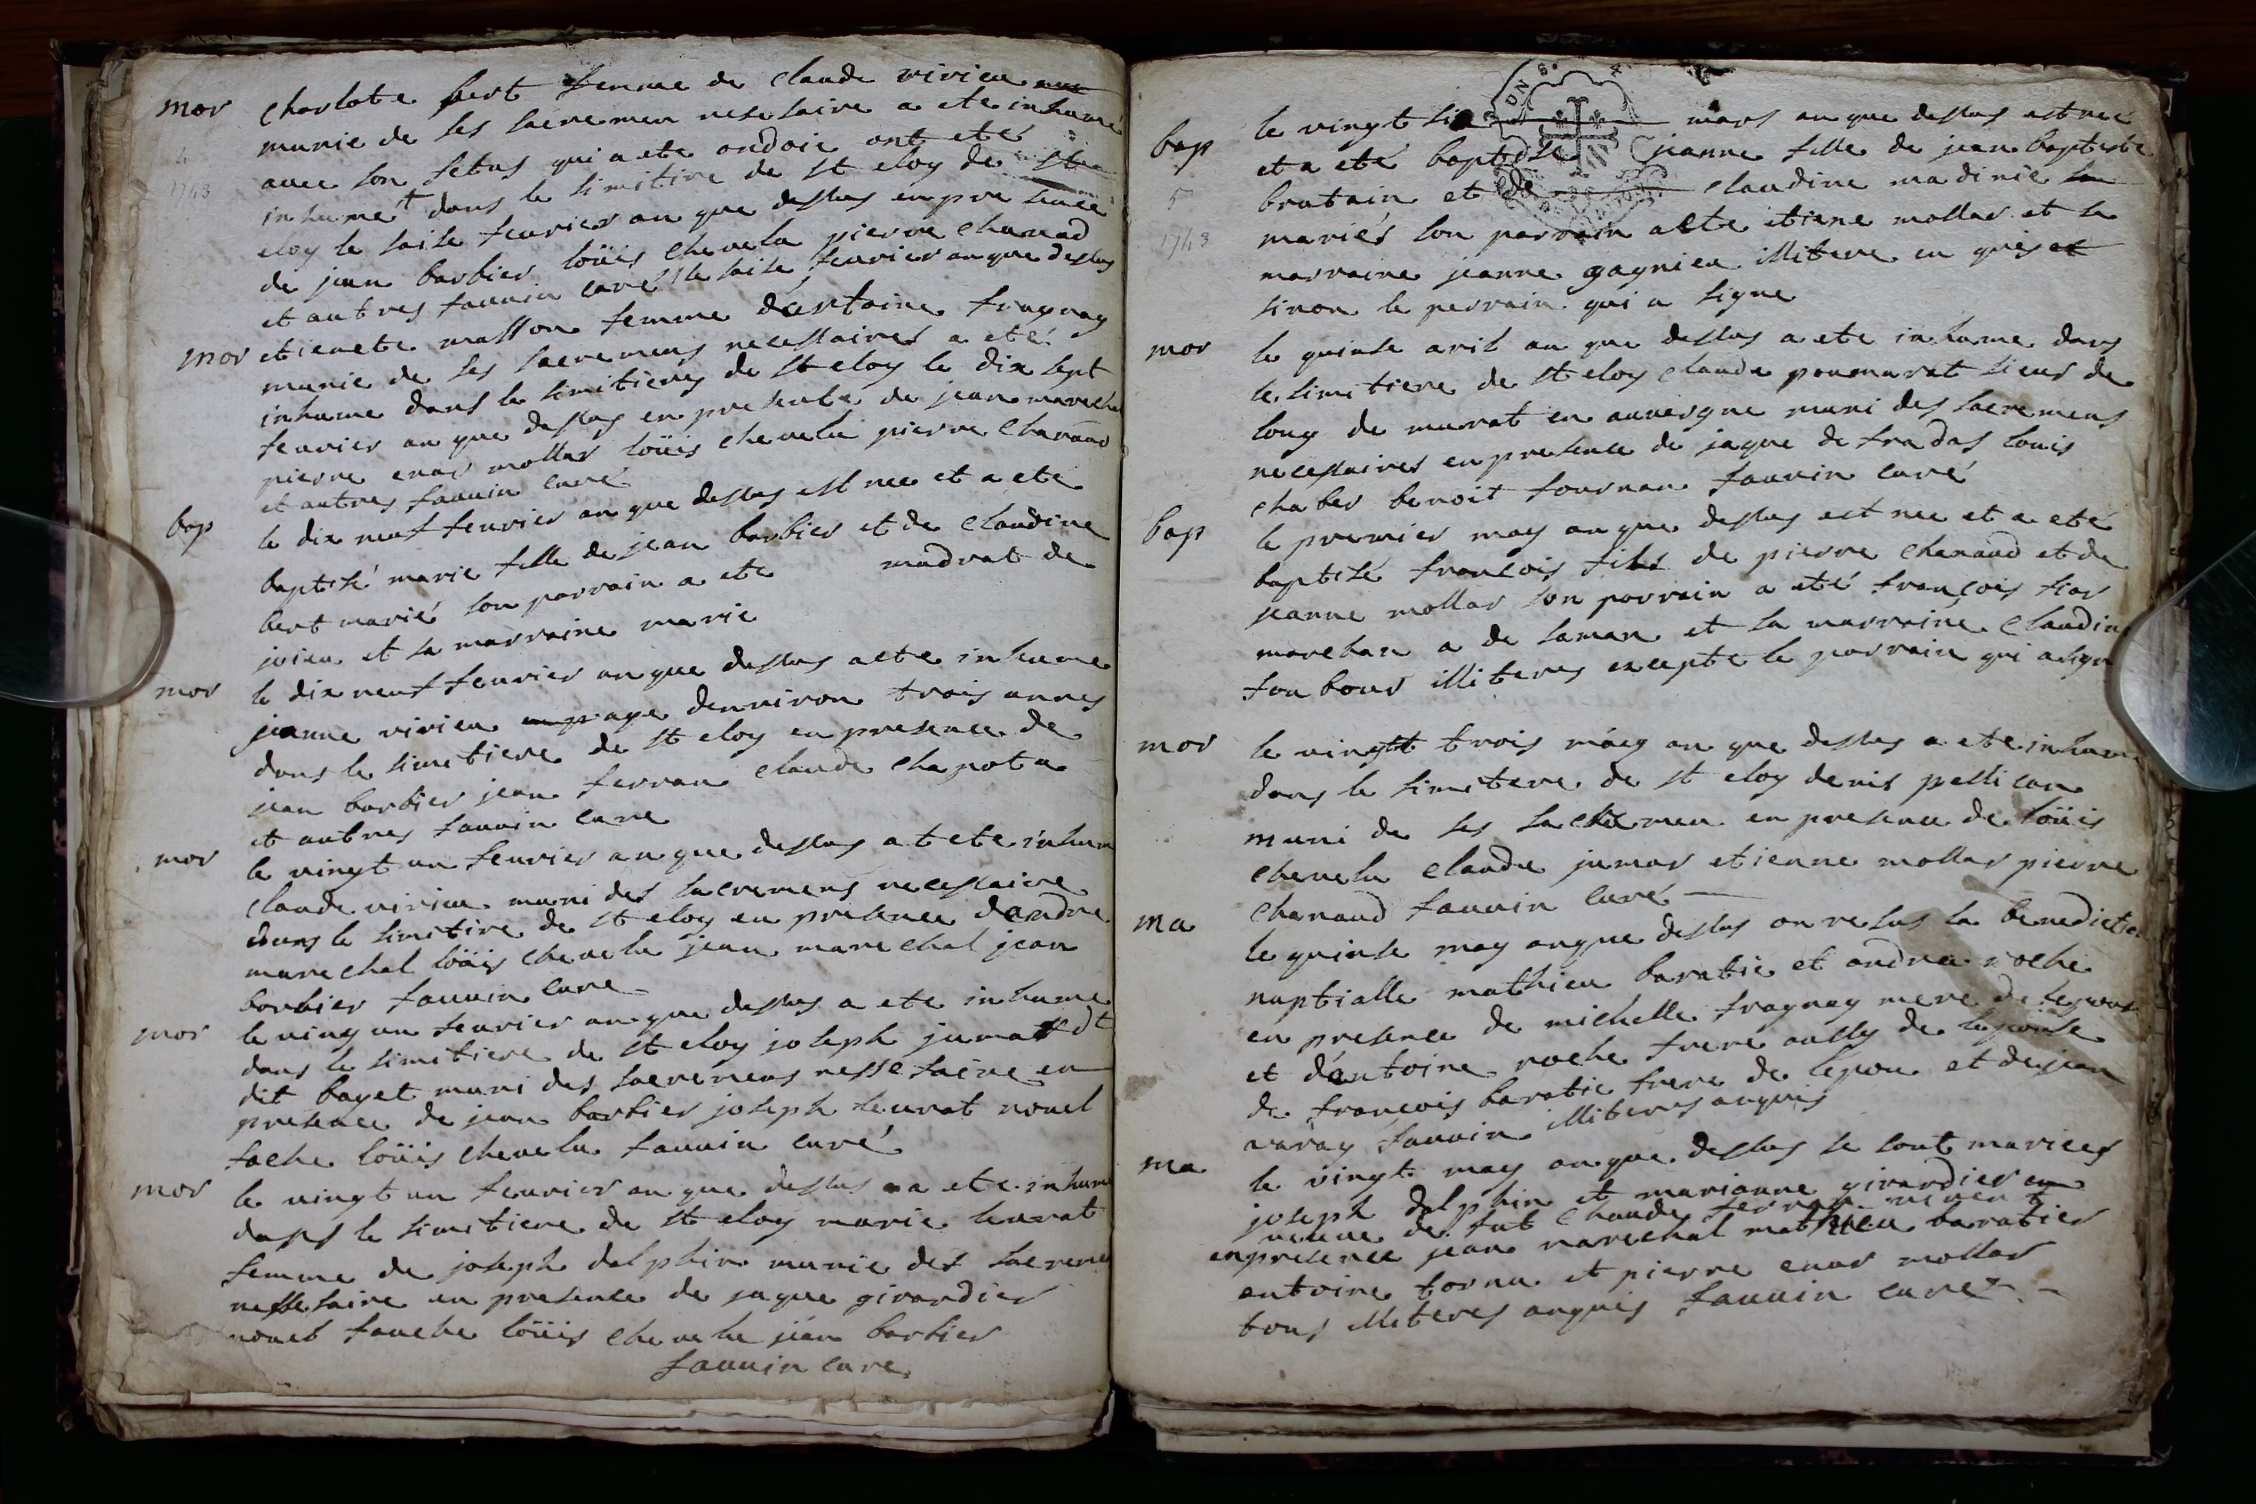 mor
charlote bert femme de claude virieu
munie de ses sacremen nesesaire a ete inhumé
avec son fetus qui a ete ondoié ont eté
inhumet dans le simitire de st eloy de
eloy le saise feurier an que dessus en pre sence
de jean barbier loüis chevelu pierre chanaud
et autres fauuin curé le saise feurier an que dessus
mor
etienete masson femme dantoine fragnay
munie de ses sacremens necessaires a eté
inhume dans le simitiere de st eloy le dix sept
feurier an que dessus en presente de jean marecha
pierre enar mollar loüis chevelu pierre chanaud
et autres fauuin curé
bap
le dix neuf feurier an que dessus est nee et a ete
baptisé marie fille de jean barbier et de claudine
bert marié son parrain a ete madrat de
jurieu et sa marraine marie
mor
le dix neuf feurier an que dessus a ete inhume
jeanne virieu age denuiron trois annes
dans le simitiere de st eloy en presence de
jean barbier jean ferran claude chapota
et autres fauuin cure
mor
le vingt un feurier an que dessus at ete inhum
claude virieu muni des sacremens necessaire
dans le simitire de st eloy en presence dandre
marechal loüis chevelu jean marechal jean
barbier fauuin cure
mor
le ving un feurier an que dessus a ete inhume
dans le simitiere de st eloy joseph jumat dt
dit bayet muni des sacremens nessesaire en
presence de jean barbier joseph leurat nouel
foche loüis chevelu fauuin curé
mor
le vingt un feurier an que dessus a ete inhum
dans le simitiere de st eloy marie leurat
femme de joseph dalphin munie des sacremen
nessesaire en presence de jaque girardier
nouel fouche loüis chevelu jean barbier
fauuin cure
1743
bap
le vingt six mars an que dessus est nee
et a eté baptise jeanne fille de jean baptiste
brutain et de claudine madinié
mariés son parrain a ete etiene mollar et sa
marraine jeanne gagnieu illitere en quis
sinon le perrain qui a signe
5
1743
mor
le quinse avril an que dessus a ete inhume dans
le simitiere de st eloy claude poumarat sieur de
long de murat en auvergne muni des sacremens
necessaires en presence de jaque de fradas louis
chaber benoit fournan fauuin curé
bap
le premier may an que dessus est nee et a eté
baptisé francois fils de pierre chanaud et de
jeanne mollar son parrain a eté francois fior
marchan a de saman et sa marraine claudin
fonbour illiteres excepte le parrain qui a sign
mor
le vingtt trois may an que dessus a ete inhum
dans le simitere de st eloy denis pellican
muni de ses sacremen en presence de loüis
chevelu claude jumar etienne mollar pierre
chanaud fauuin curé
ma
le quinse may an que dessus on resus la benediction
nuptialle mathieu baratie et andrea roche
en presence de michelle fragnay mere de
et dantoine roche frere oussy de
de francois baratie frere de lepou et de jean
auray fauuin illiteres anquis
ma
le vingt may an que dessus se sont mariees
joseph dalphin et marianne girardier
veuue de fut claude
enpresence jean marechal mathieu baratier
antoine tornu et pierre enar mollar
tous illiteres anquis fauuin cure